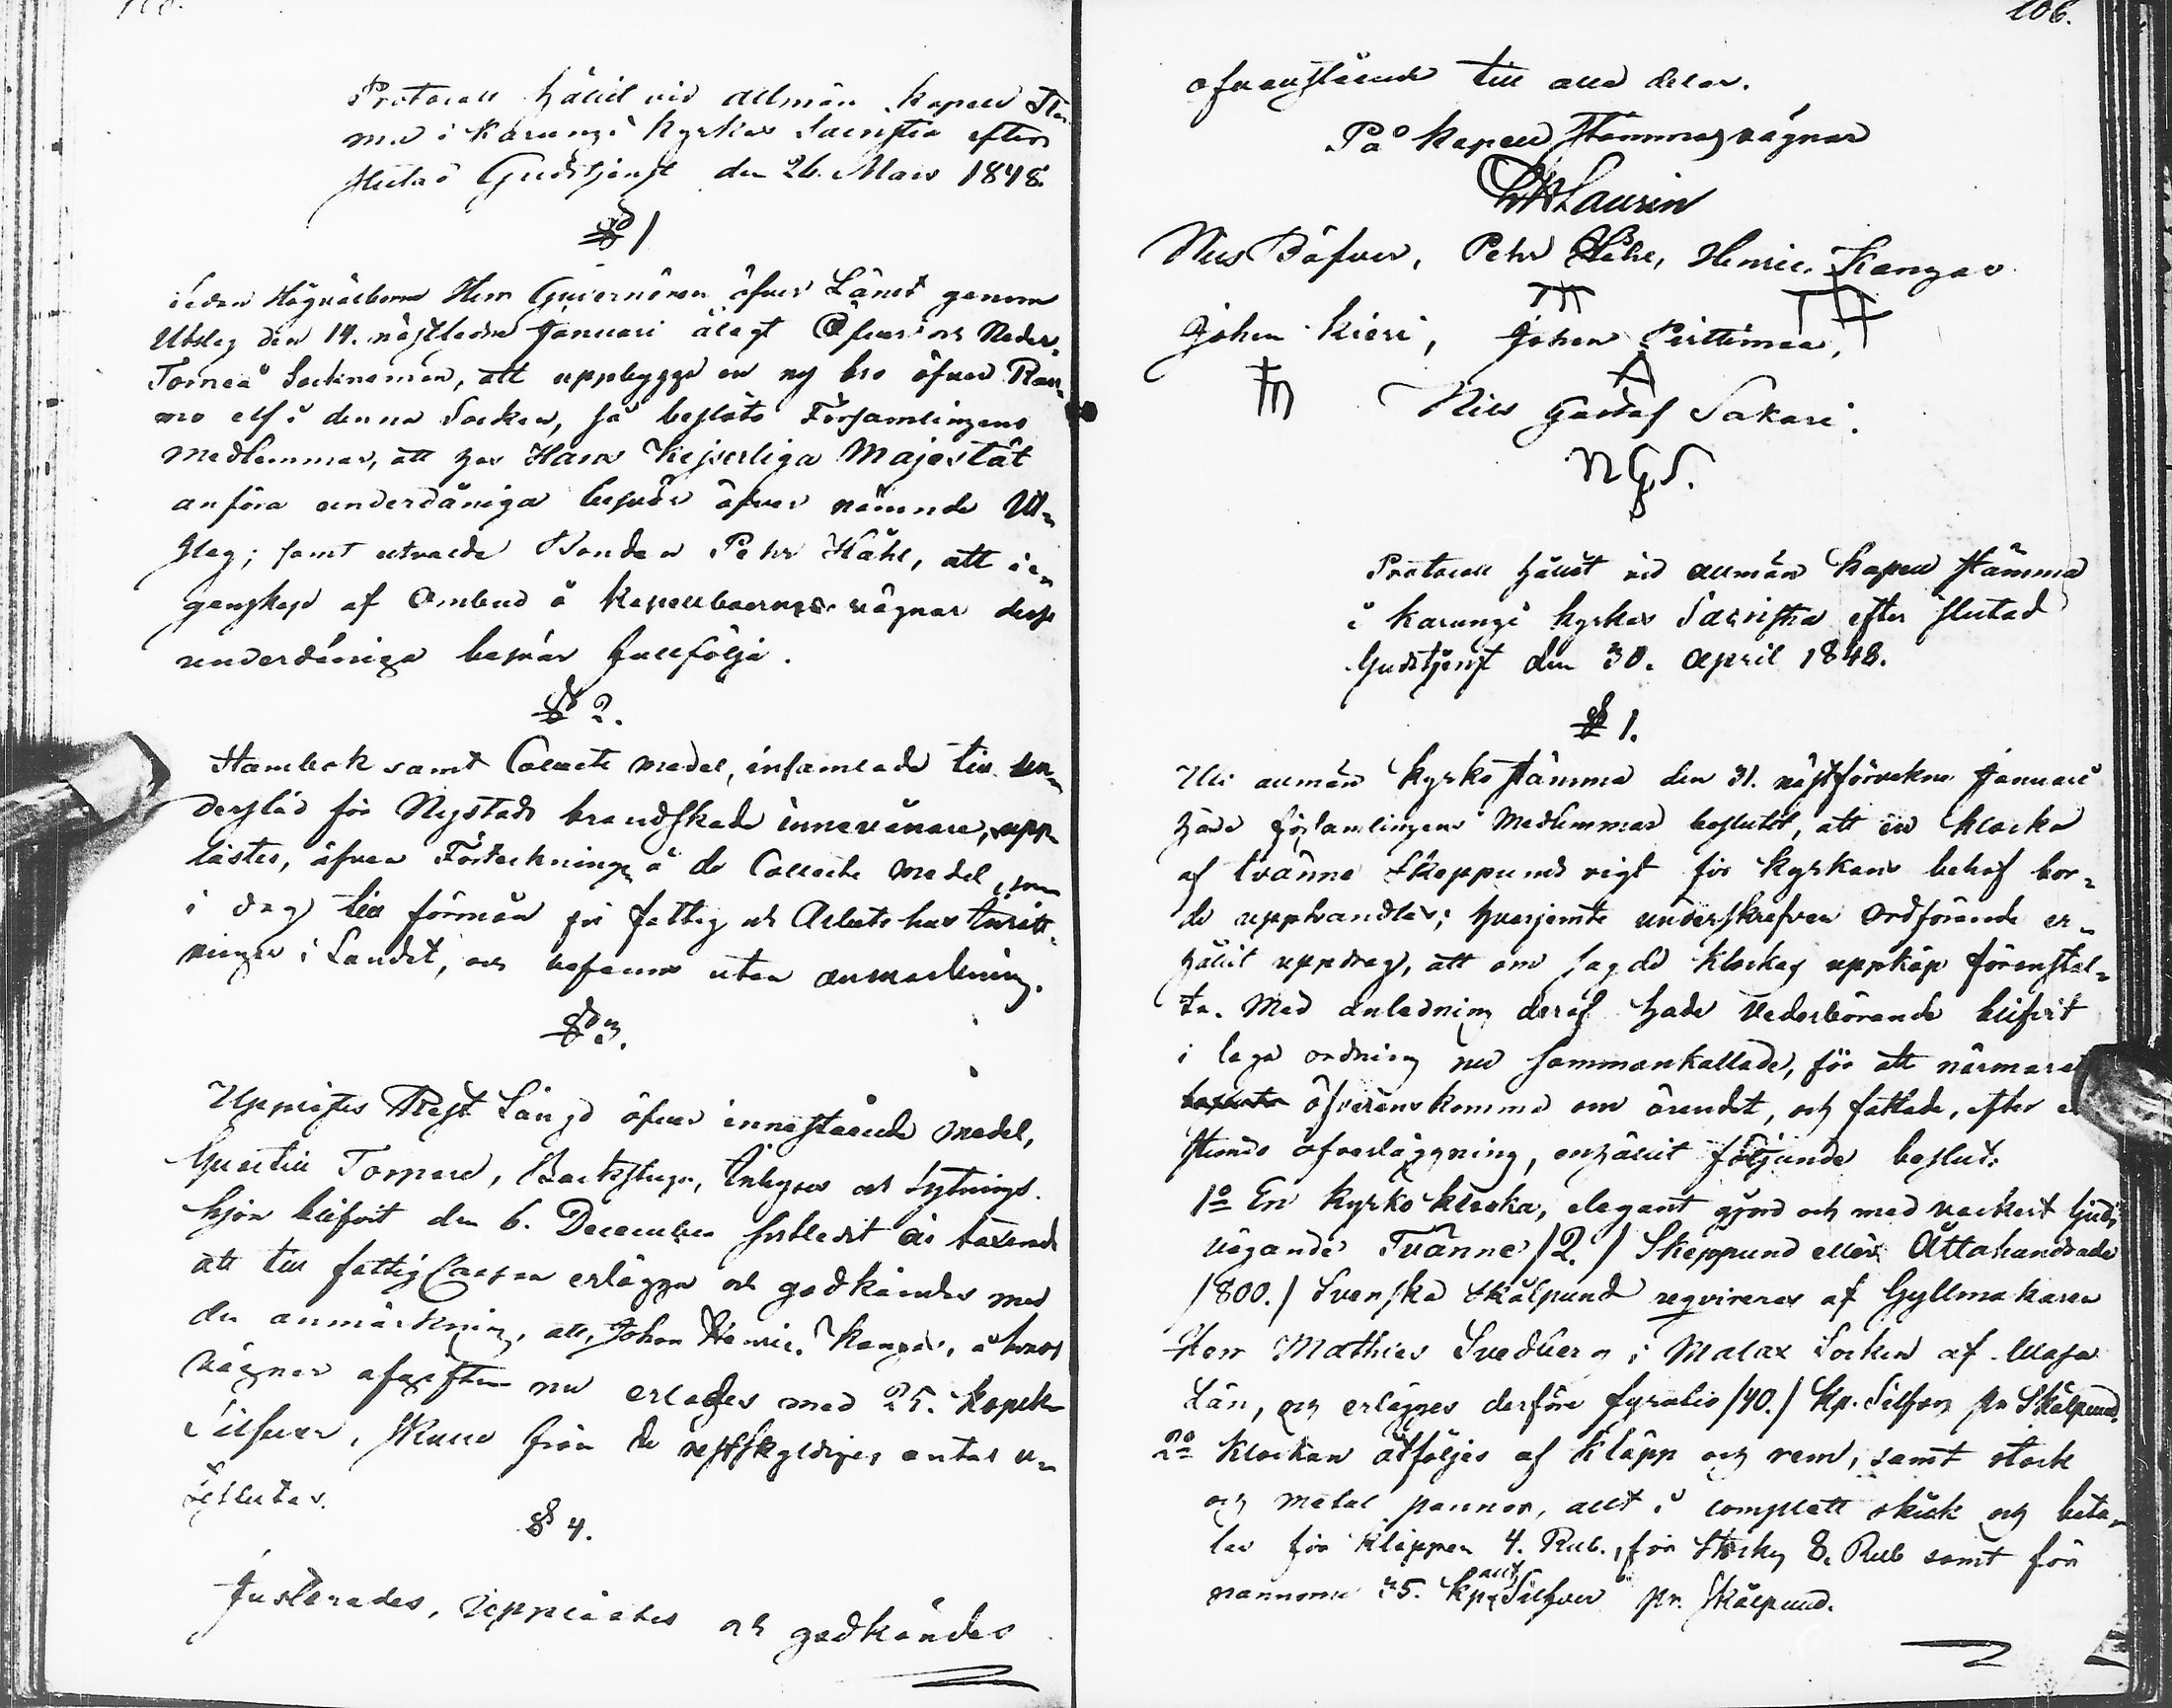 Protocoll hållit vid allmän Kapell Stäm
ma i Karungi Kyrkas Sacristia efter
slutad Gudstjenst den 26. Mars 1848.
§ 1
sedan Högvälborne Herr Guvernören öfver Länet genom
Utslag den 14. nästledne Januari ålagt Öfver och Neder-
Torneå Sockneman, att uppbygga en ny bro öfver Rau-
mo elf i denna Socken, så beslöto Församlingens
medlemmar, att hos Hans Kejserliga Majestät
anföra underdåniga besvär öfver nämnde Ut-
slag; samt utvalde Bonden Pehr Håhl, att i e-
genskap af Ombud å Kapellboernas vägnar desse
underdåniga besvär fullfölja.
§ 2.
Stambok samt Collecte medel, insamlade till un-
derstöd för Nystads brandskada innevånare, upp-
lästes, äfven Förteckning å de Collecte medel, som
i dag till förmån för fattig och Arbetshus Inrätt-
ningen i Landet, och befanns utan anmärkning.
§ 3.
Upplästes Rest Längd öfver innestående medel,
hvartill Torpare, Backstugu, Inhyses och Sytnings-
hjon blifvit den 6. December sistledit år taxerade
att till fattig Cassan erlägga och godkändes med
den anmärkning, att, Johan Henric. Kangas, å hvars
vägnar afgiften nu erlades med 25. kopek
Silfver, skulle från de restskyldiges antal u-
teslutas.
§ 4.
Justerades, Upplästes och godkändes
106.
ofvanstående till alla delar.
På Kapell Stämmas vägnar
Laurin
Nils Båfver, Pehr Håhl, Henric. Kangas
Johan Kieri, Johan Pirttimaa,
Nils Gustaf Sakari.
NGS.
Protocoll hållit vid allmän Kapell Stämma
i Karungi Kyrkas Sacristia efter slutad
Gudstjenst den 30. April 1848.
§ 1.
Uti allmän Kyrko Stämma den 31. nästförvekne Januari
hade församlingens Medlemmar beslutit, att en klocka
af tvänne Skeppunds vigt för Kyrkans behof bor-
de upphandlas; hvarjemte underskrefven Ordförande er-
hållit uppdrag, att om sagde Klockas uppköp föranstal-
ta. Med anledning deraf hade Vederbörande blifvit
i laga ordning nu sammankallade, för att närmare
öfverenskomma om ärendet, och fattade, efter en
stunds öfverläggning, enhälligt följande beslut:
1o En Kyrko klocka, elegant gjord och med vackert ljud,
vägande Tvänne /2./ Skeppund eller Åttahundrade
/800./ Svenska Skålpund reqvireras af Gyllmakaren
Herr Mathias Svedberg i Malax Socken af Wasa
Län, och erlägges derföre fyratio /40./ Kp. Silfver pr Skålpund.
2o Klockan åtföljes af Kläpp och rem, samt stock
och metal pannor, allt i complett skick och beta-
las för Kläppen 4. Rub., för Stocken 8. Rub samt för
pannorna 35. Kp. allt Silfver pr. Skålpund.